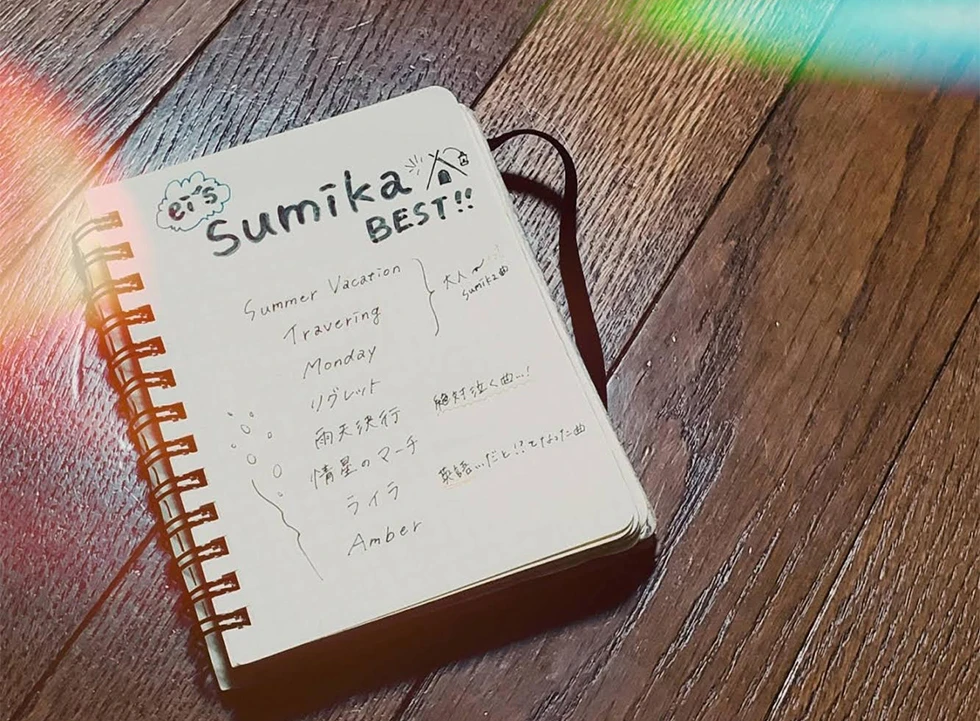 ei's
Sumika
BEST!!
Summer Vacation
Travering
Monday
大人〜
sumika曲
リグレット
雨天決行
絶対泣く曲…!
情星のマーチ
ライラ
英語…だと!?となった曲
Amber